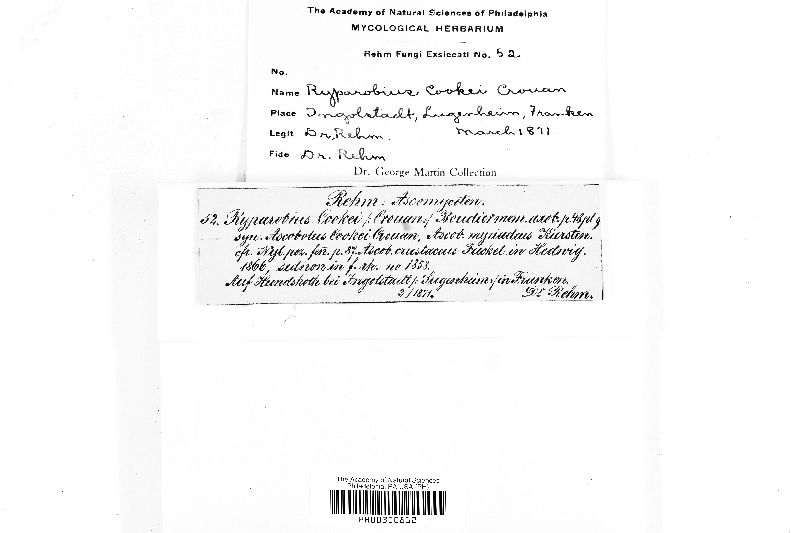 The Academy of Natural Sciences of Philadelphia
MYCOLOGICAL HERBARIUM
Rehm Fungi Exsiccati No. 52
No.
Name Ryparobius Cookei Crouan
Place Ingolstadt, Lugenheim, Franken
Legit Dr. Rehm. March 1871
Fide Dr. Rehm
Dr. George Martin Collection
Rehm: Ascomyceten.
52. Ryparobius Cookei /: Crouan :/ Boudier mem. ascob. p. 48 pl 9
syn. Ascobolus Cookei Crouan, Ascob. myriadeus Karsten.
cfr. Nyl. pez. fen. p. 87. Ascob. crustaceus Fuckel in Hedwig.
1866, sed non in f. rh. no 1853.
Auf Hundskoth bei Ingolstadt /: Sugenheim :/ in Franken.
3/1871. Dr. Rehm.
The Academy of Natural Sciences
Philadelphia, PA USA (PH)